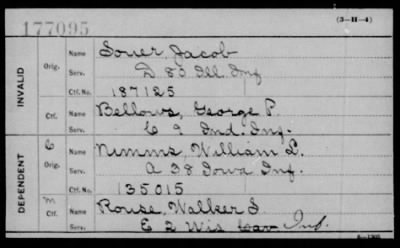 177095
(3-H-4)
INVALID
Orig. Name Sourer, Jacob
Serv. D 83 Ill. Inf
Ctf. No. 187125
Ctf. Name Bellows, George P.
Serv. C 9 Ind. Inf.
DEPENDENT
C Orig. Name Nimms, William L.
Serv. A 38 Iowa Inf.
Ctf. No. 135015
m Ctf. Name Rouse, Walker I.
Serv. E 2 Wis Cav Inf.